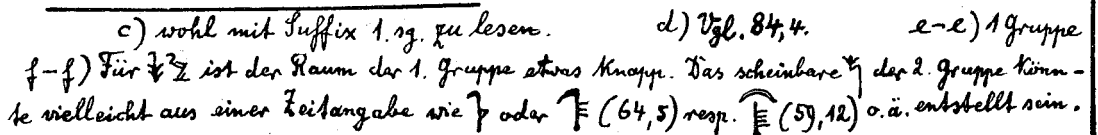 c) wohl mit Suffix 1. sg. zu lesen. d) Vgl. 84,4. e-e) 1 Gruppe
f-f) Für ist der Raum der 1. Gruppe etwas knapp. Das scheinbare der 2. Gruppe könn-
te vielleicht aus einer Zeitangabe wie oder (64,5) resp. (59,12) o.ä. entstellt sein.